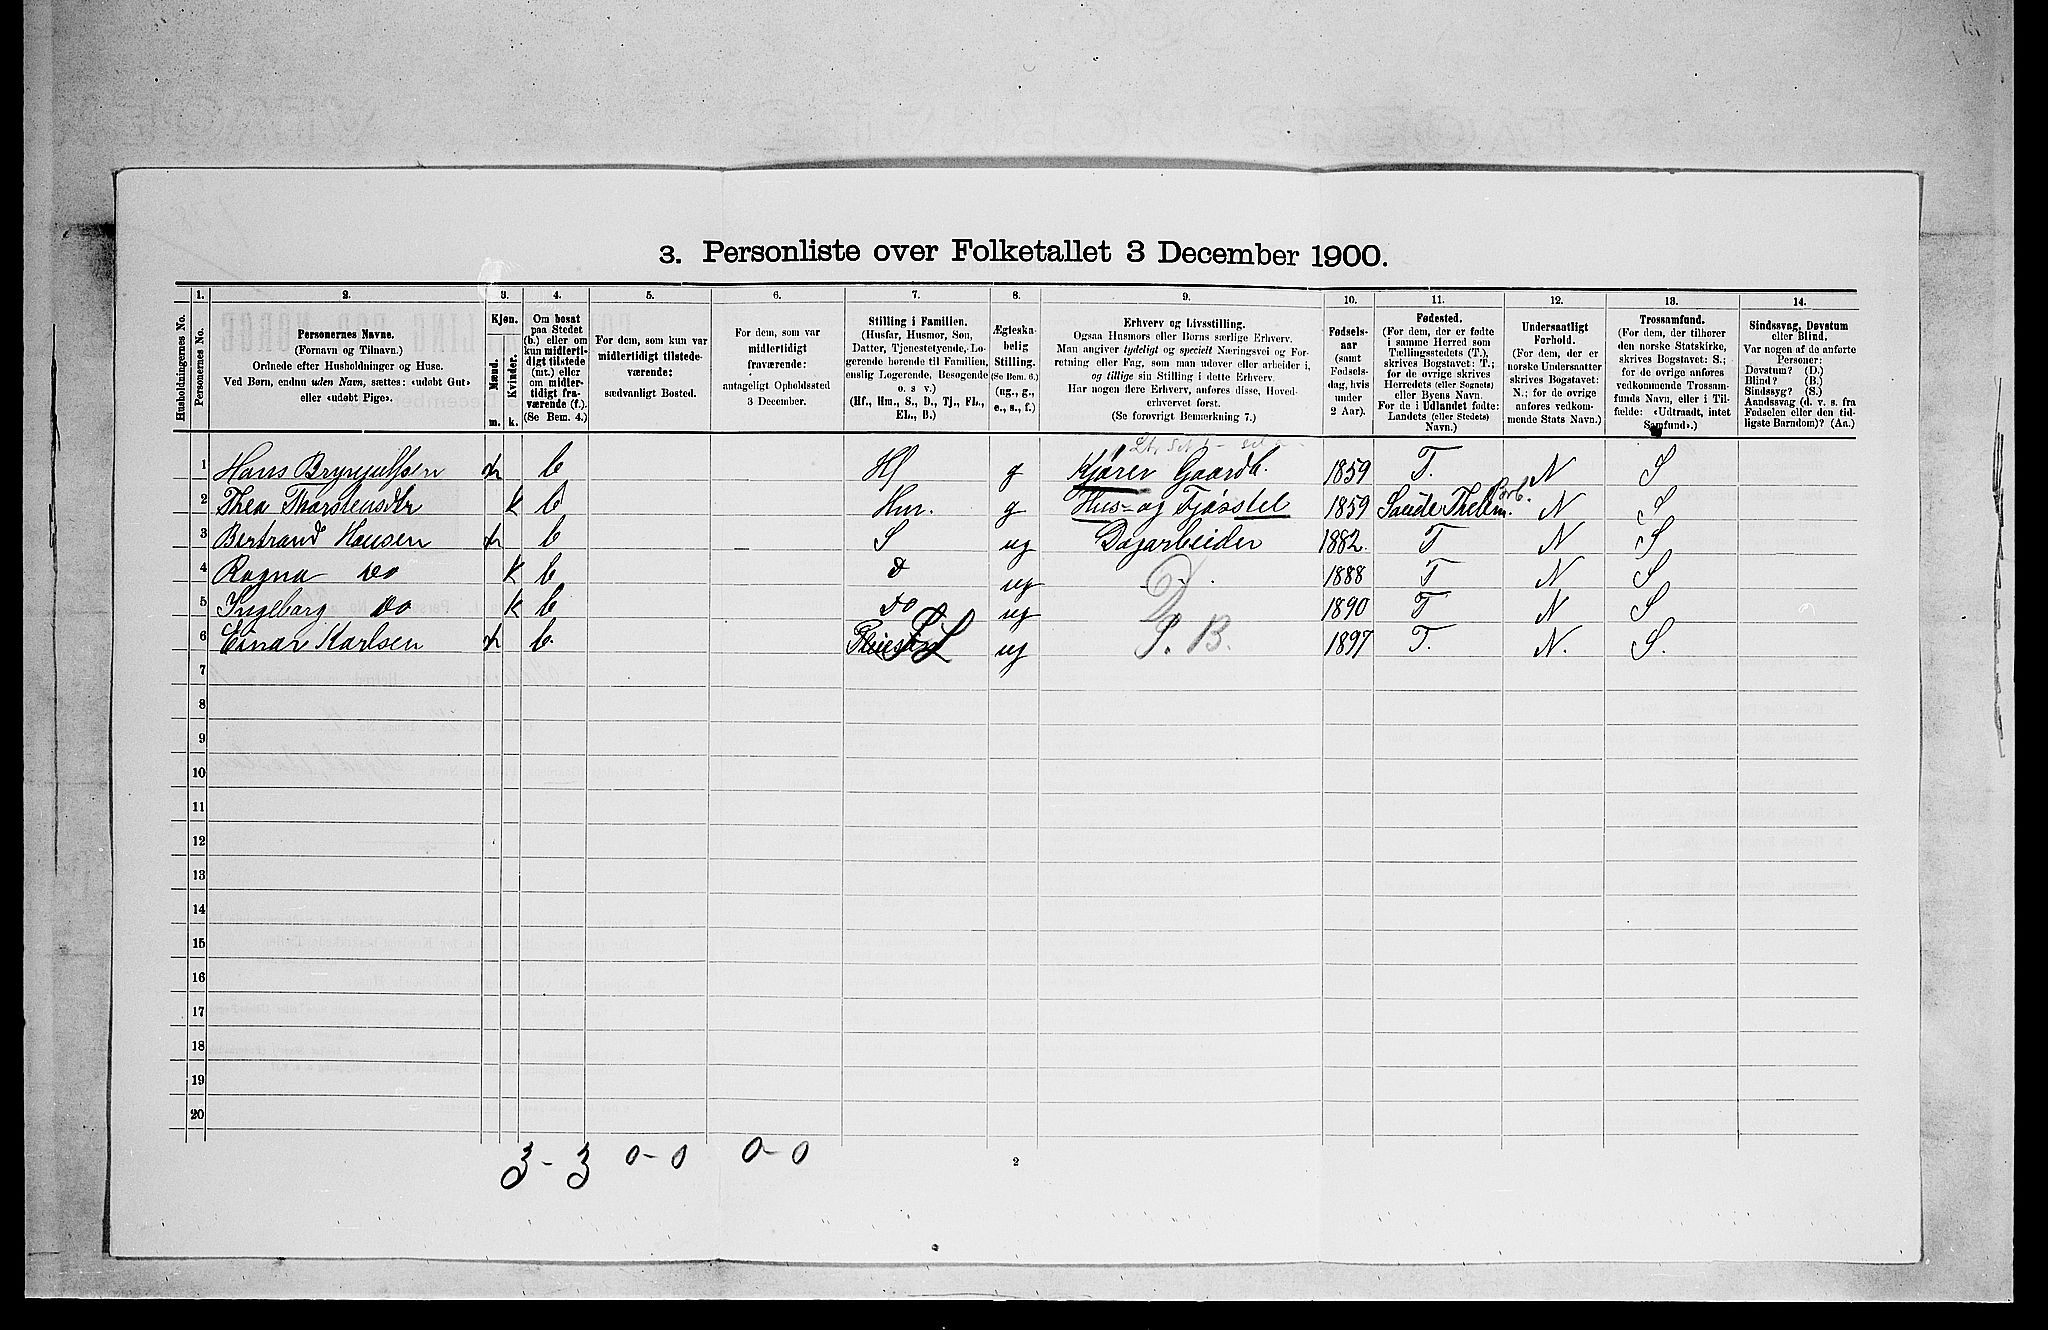 3. Personliste over Folketallet 3 December 1900.
1. 2. 3. 4. 5. 6. 7. 8. 9. 10. 11. 12. 13. 14.
Husholdningernes No.
Personernes No.
Personernes Navne.
(Fornavn og Tilnavn.)
Ordnede efter Husholdninger og Huse.
Ved Børn, endnu uden Navn, sættes: «udøbt Gut»
eller «udøbt Pige».
Kjøn.
Mænd.
Kvinder.
m. k.
Om bosat
paa Stedet
(b.) eller om
kun midlerti-
digt tilstede
(mt.) eller
om midler-
tidigt fra-
værende (f.).
(Se Bem. 4.)
For dem, som kun var
midlertidigt tilstede-
værende:
sædvanligt Bosted.
For dem, som var
midlertidigt
fraværende:
antageligt Opholdssted
3 December.
Stilling i Familien.
(Husfar, Husmor, Søn,
Datter, Tjenestetyende, Lo-
gerende hørende til Familien,
enslig Logerende, Besøgende
o. s v.)
(Hf., Hm., S., D., Tj., FL.,
EL., B.)
Ægteska-
belig
Stilling.
(Se Bem. 6.)
(ug., g.,
e., s., f.)
Erhverv og Livsstilling.
Ogsaa Husmors eller Børns særlige Erhverv.
Man angiver tydeligt og specielt Næringsvei og For-
retning eller Fag, som man udøver eller arbeider i,
og tillige sin Stilling i dette Erhverv.
Har nogen flere Erhverv, anføres disse, Hoved-
erhvervet først.
(Se forøvrigt Bemerkning 7.)
Fødsels-
aar
(samt
Fødsels-
dag, hvis
under
2 Aar).
Fødested.
(For dem, der er fødte
i samme Herred som
Tællingsstedets (T.),
skrives Bogstavet: T.;
for de øvrige skrives
Herredets (eller Sognets)
eller Byens Navn.
For de i Udlandet fødte:
Landets (eller Stedets)
Navn.)
Undersaatligt
Forhold.
(For dem, der er
norske Undersaatter
skrives Bogstavet:
N.; for de øvrige
anføres vedkom-
mende Stats Navn.)
Trossamfund.
(For dem, der tilhører
den norske Statskirke,
skrives Bogstavet: S.;
for de øvrige anføres
vedkommende Trossam-
funds Navn, eller i Til-
fælde: «Udtraadt, intet
Samfund».)
Sindssvag, Døvstum
eller Blind.
Var nogen af de anførte
Personer:
Døvstum? (D.)
Blind? (B.)
Sindssyg? (S.)
Aandssvag (d. v. s. fra
Fødselen eller den tid-
ligste Barndom)? (Aa.)
1 Hans Brynjulfsen m b Hf g Kjører Gaardb. 1859 T. N S
2 Thea Thorstensdtr k b Hm. g Hus- og Fjøsstel 1859 Saude Thellm. N S
3 Bertrand Hansen m b S ug Dagarbeider 1882. T N S
4 Ragna Do k b d ug 1888 T N S
5 Ingeborg Do k b do ug D. 1890 T N S
6 Einar Karlsen m b. FL ug P. B. 1897 T. N. S.
7
8
9
10
11
12
13
14
15
16
17
18
19
20
3 - 3 0 - 0 0 - 0
2